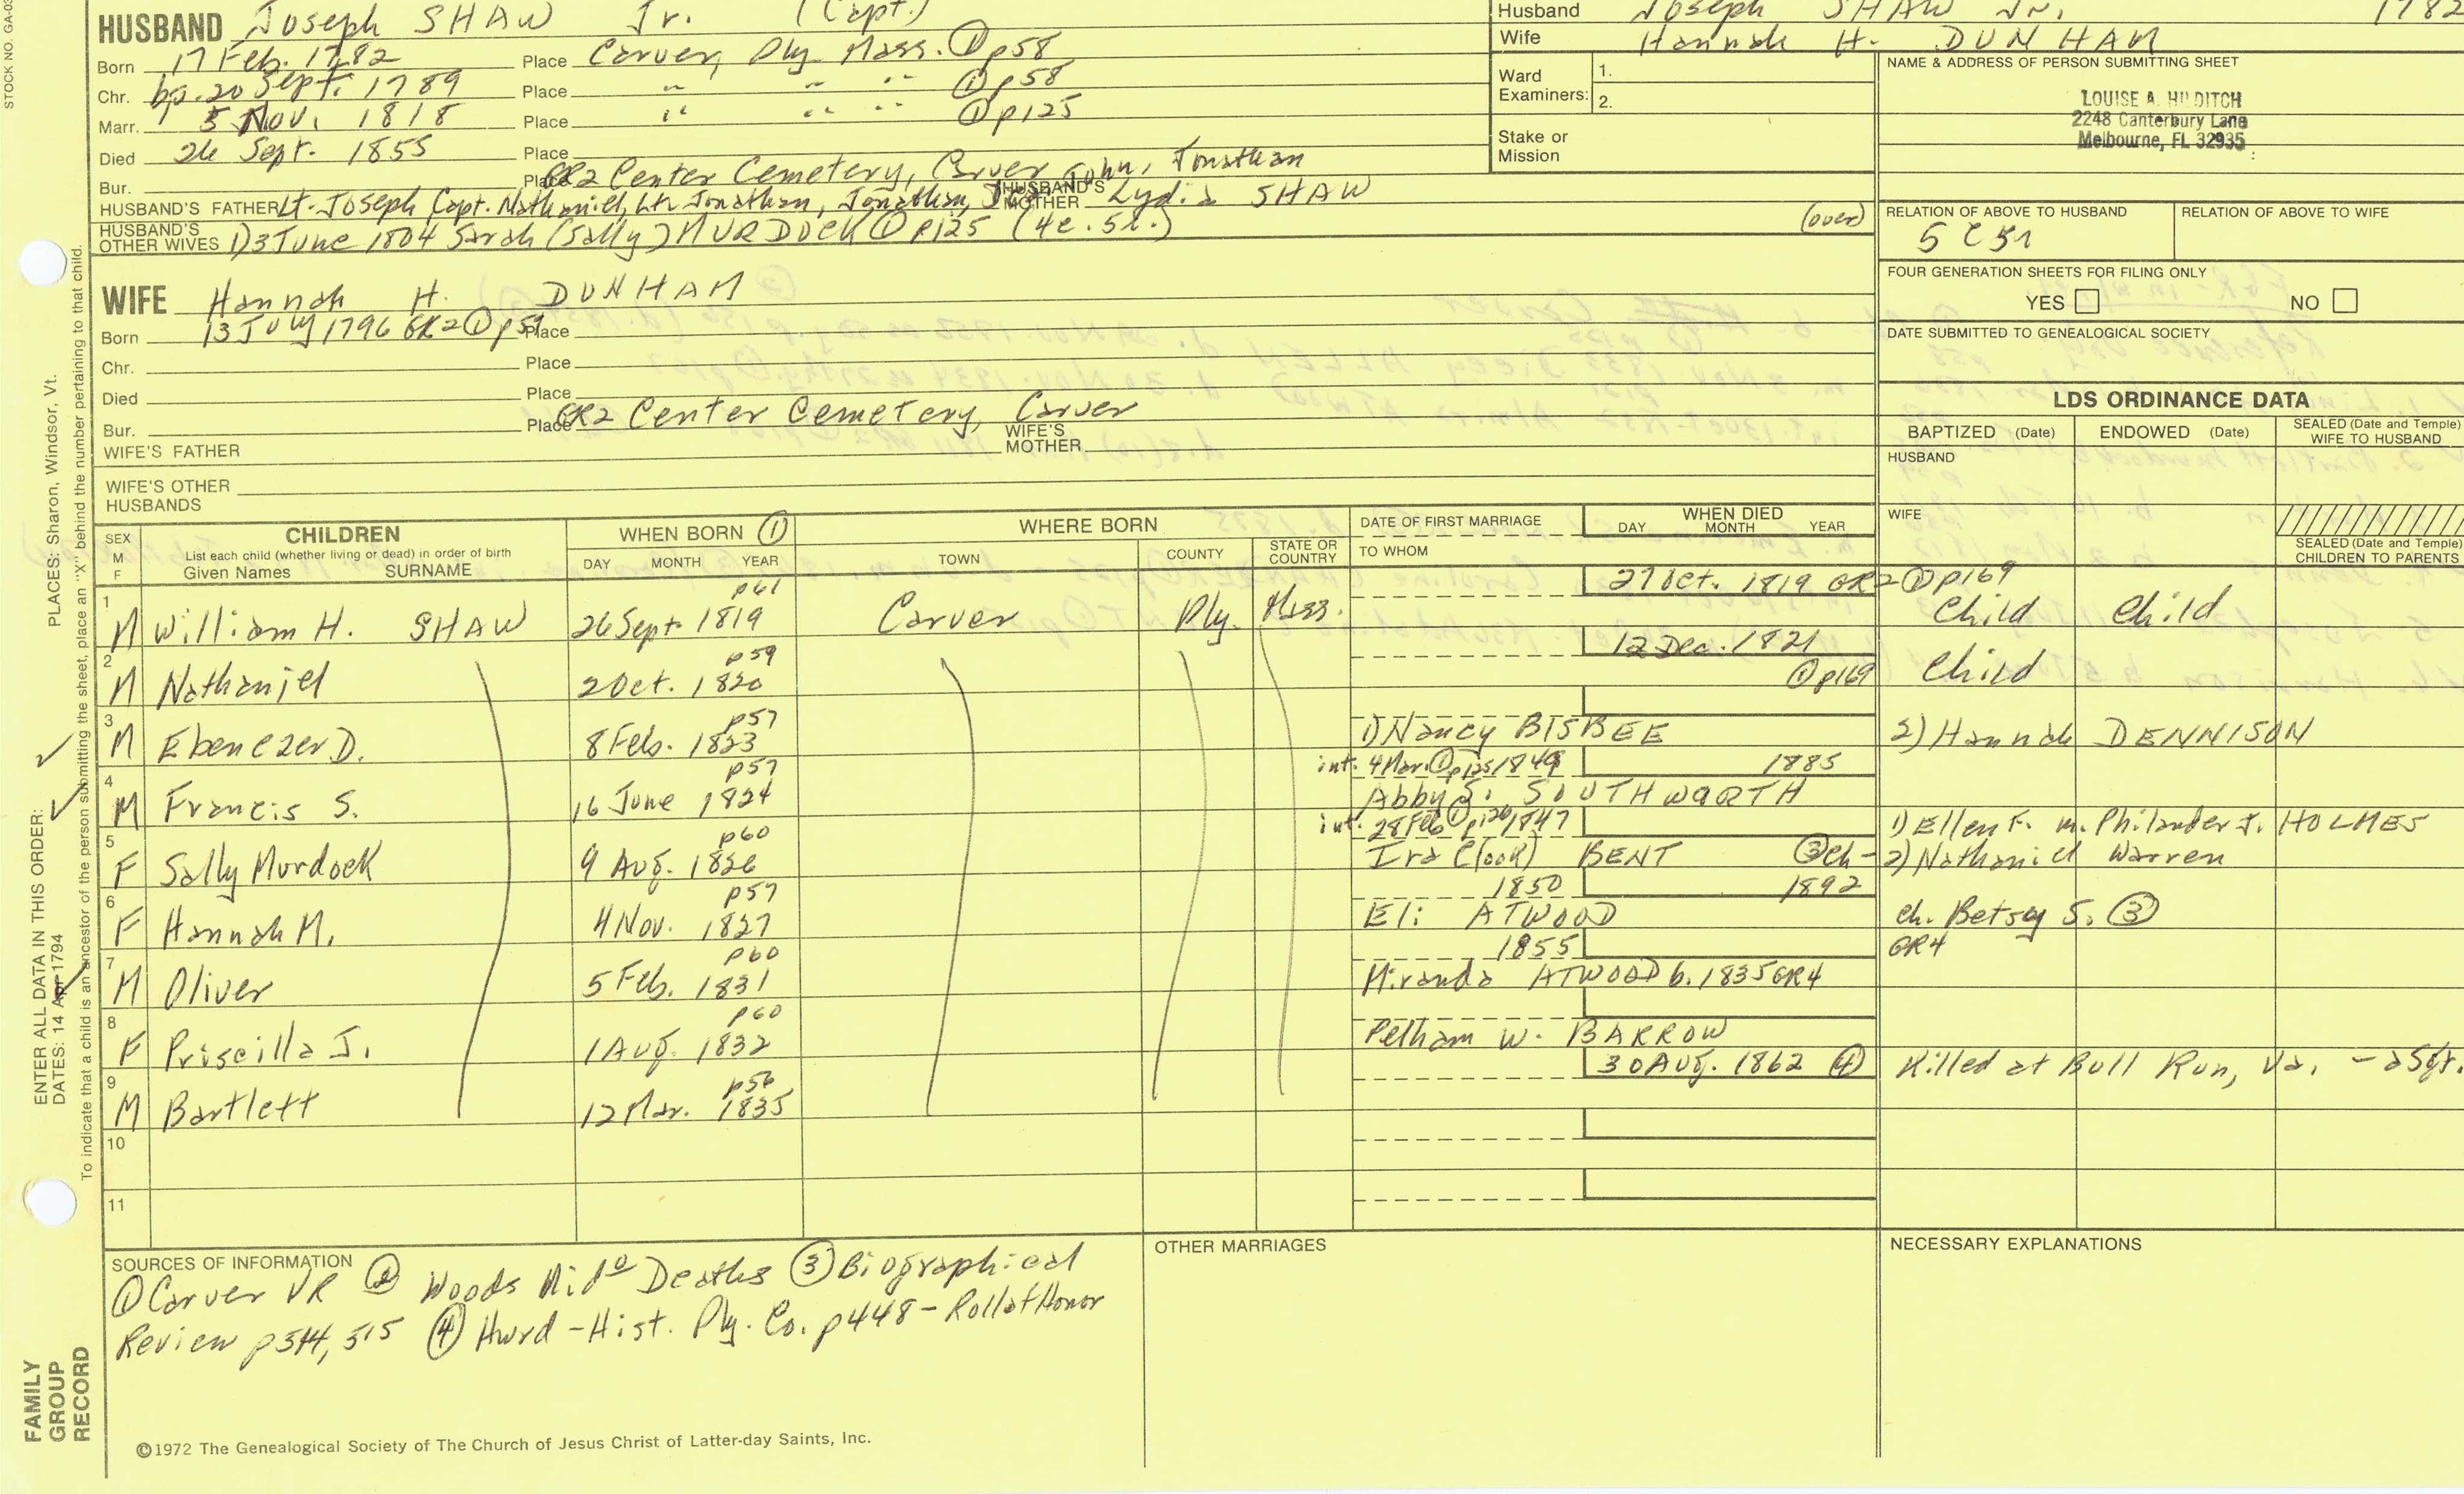 STOCK NO. GA-03
HUSBAND Joseph SHAW Jr. (Capt.)
Born 17 Feb. 1782 Place Carver, Ply Mass. ① p58
Chr. bp. 20 Sept. 1789 Place " " " ① p58
Marr. 5 Nov. 1818 Place " " " ① p125
Died 26 Sept. 1855 Place
Bur. Place GR2 Center Cemetery, Carver John, Jonathan
HUSBAND'S FATHER Lt. Joseph, Capt. Nathaniel, Lt. Jonathan, Jonathan, HUSBAND'S MOTHER Lydia SHAW
HUSBAND'S OTHER WIVES 1) 3 June 1804 Sarah (Sally) MURDOCK ① p125 (4c. 5x.) (over)
Husband Joseph SHAW Jr. 1782
Wife Hannah H. DUNHAM
Ward Examiners: 1.
2.
Stake or Mission
NAME & ADDRESS OF PERSON SUBMITTING SHEET
LOUISE A. HILDITCH
2248 Canterbury Lane
Melbourne, FL 32935
RELATION OF ABOVE TO HUSBAND RELATION OF ABOVE TO WIFE
5C5r
FOUR GENERATION SHEETS FOR FILING ONLY
YES NO
DATE SUBMITTED TO GENEALOGICAL SOCIETY
WIFE Hannah H. DUNHAM
Born 13 July 1796 GR2 ① p59 Place
Chr. Place
Died Place
Bur. Place GR2 Center Cemetery, Carver
WIFE'S FATHER WIFE'S MOTHER
WIFE'S OTHER HUSBANDS
LDS ORDINANCE DATA
BAPTIZED (Date) ENDOWED (Date) SEALED (Date and Temple) WIFE TO HUSBAND
HUSBAND
WIFE
SEALED (Date and Temple) CHILDREN TO PARENTS
SEX M F CHILDREN WHEN BORN ① WHERE BORN DATE OF FIRST MARRIAGE WHEN DIED
List each child (whether living or dead) in order of birth
Given Names SURNAME DAY MONTH YEAR TOWN COUNTY STATE OR COUNTRY TO WHOM DAY MONTH YEAR
p61 27 Oct. 1819 GR2 ① p169
1 M William H. SHAW 26 Sept. 1819 Carver Ply. Mass. Child Child
p59 12 Dec. 1821
2 M Nathaniel 2 Oct. 1820 ① p169 Child
p57
3 M Ebenezer D. 8 Feb. 1823 1) Nancy BISBEE 2) Hannah DENNISON
p57 int. 4 Mar. ① p125 1849 1885
4 M Francis S. 16 June 1824 Abby S. SOUTHWORTH
p60 int. 28 Feb ① p126 1847 1) Ellen F. m. Philander J. HOLMES
5 F Sally Murdock 9 Aug. 1826 Ira C(ook) BENT ③ ch- 2) Nathaniel Warren
p57 1850 1892
6 F Hannah M. 4 Nov. 1827 Eli ATWOOD ch. Betsey S. ③
p60 1855 GR4
7 M Oliver 5 Feb. 1831 Miranda ATWOOD b. 1835 GR4
p60
8 F Priscilla J. 1 Aug. 1832 Pelham W. BARROW
p56 30 Aug. 1862 ④ Killed at Bull Run, Va. - a Sgt.
9 M Bartlett 12 Mar. 1835
10
11
SOURCES OF INFORMATION
① Carver VR ② Woods Mid° Deaths ③ Biographical
Review p 514, 515 ④ Hurd - Hist. Ply. Co. p448 - Roll of Honor
OTHER MARRIAGES
NECESSARY EXPLANATIONS
©1972 The Genealogical Society of The Church of Jesus Christ of Latter-day Saints, Inc.
FAMILY GROUP RECORD
ENTER ALL DATA IN THIS ORDER:
DATES: 14 Apr 1794
PLACES: Sharon, Windsor, Vt.
To indicate that a child is an ancestor of the person submitting the sheet, place an "X" behind the number pertaining to that child.